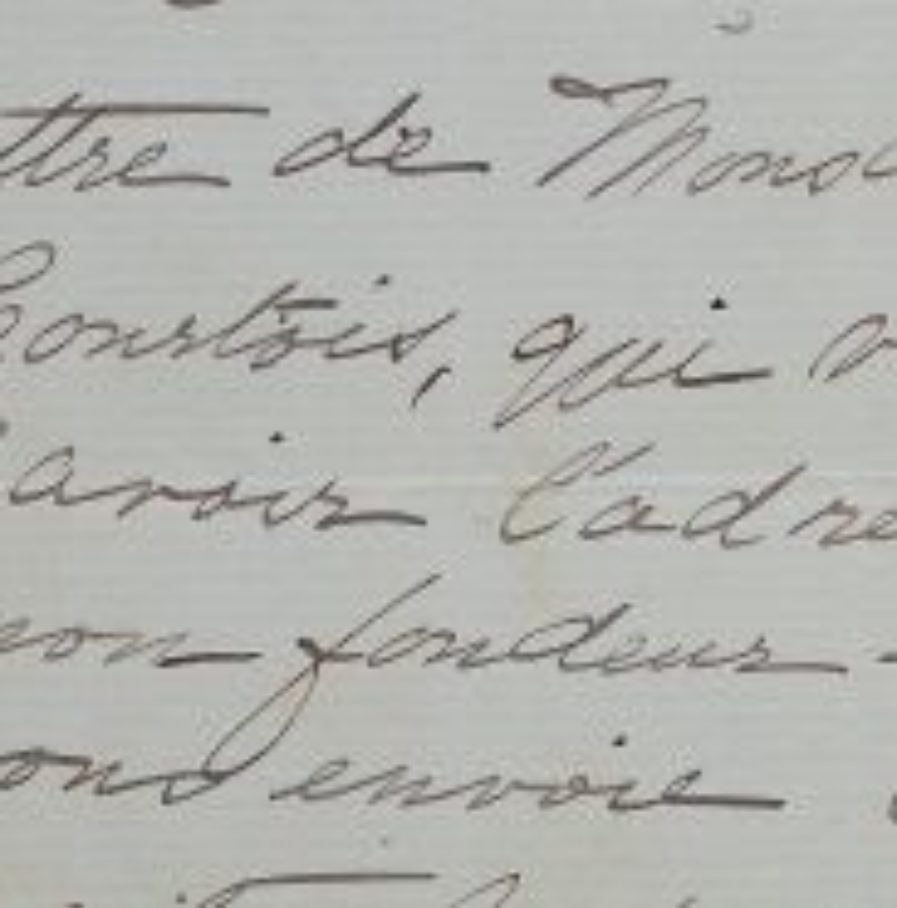 ttre de Mons
Courtois, qui v
avoir l'adre
mon fondeur -
envoie